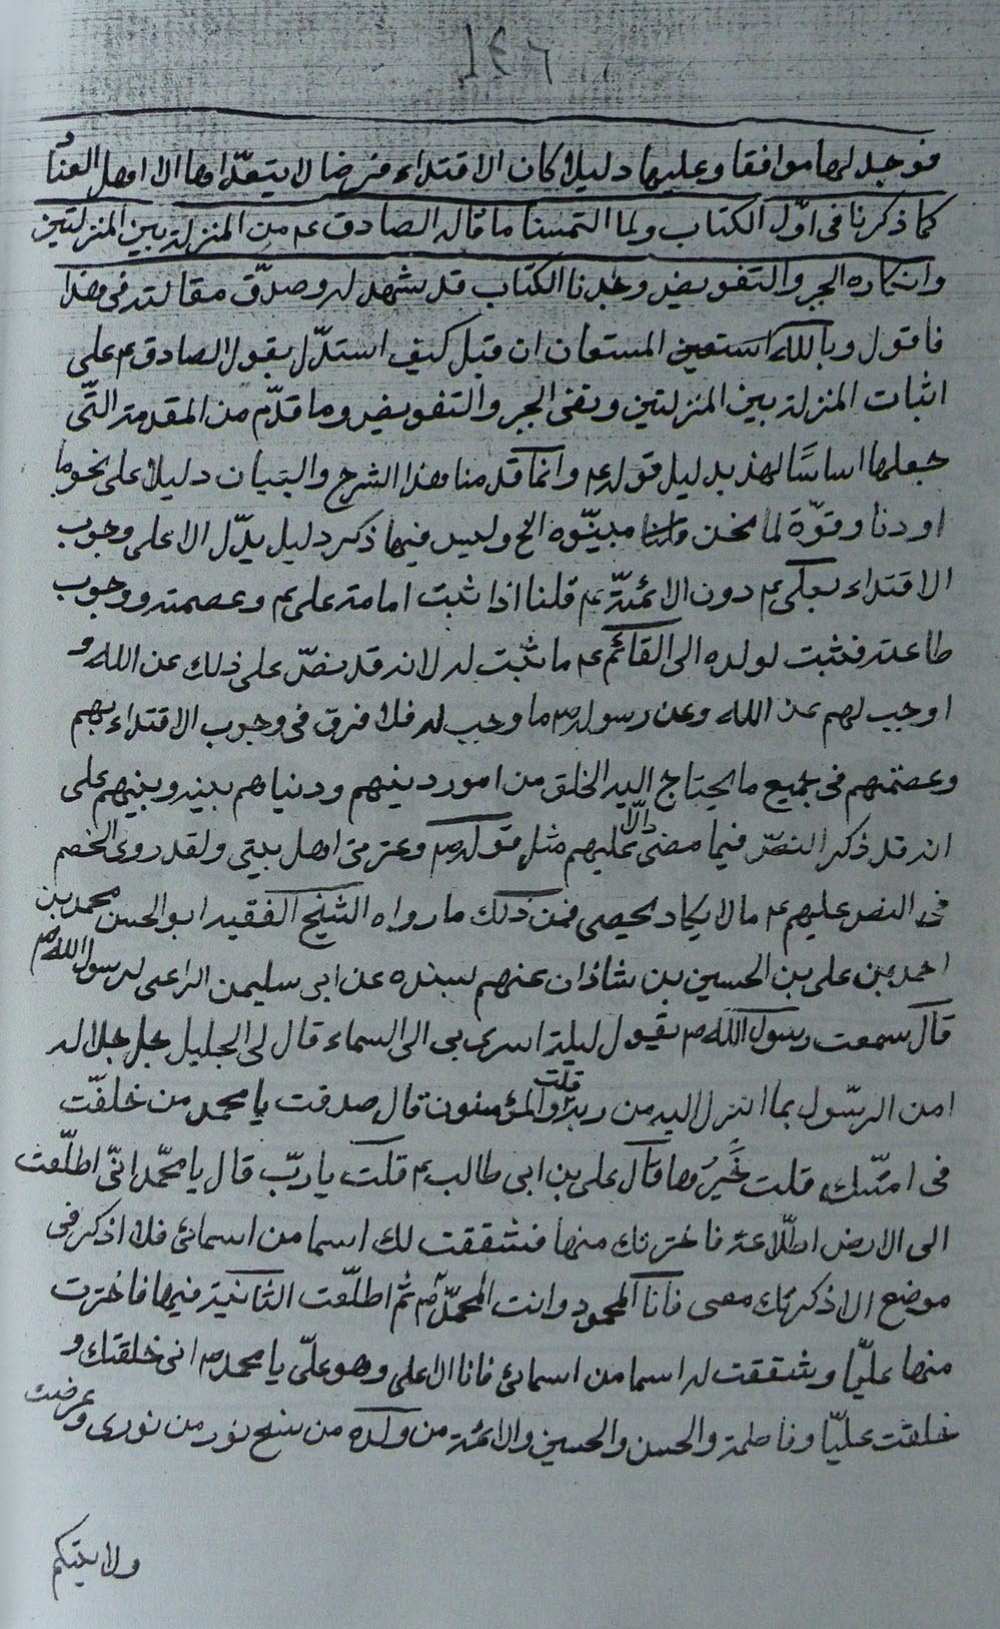 ١٤٦
فوجد لها موافقا وعليها دليلا كان الاقتداء فرضا لا يتعدّاها الا اهل العناد
كما ذكرنا فى اوّل الكتاب ولما التمسنا ما قاله الصادق عم من المنزلة بين المنزلتين
وانكاره الجبر والتفويض وجدنا الكتاب قد شهد له وصدّق مقالته فى هذا
فاقول وبالله استعين المستعان ان قيل كيف استدلّ بقول الصادق عم على
اثبات المنزلة بين المنزلتين ونفى الجبر والتفويض وما قدّم من المقدمة التّى
جعلها اساسًا لهذ بدليل قوله عم وانما قدمنا هذا الشرح والبيان دليلا على نحو ما
اردنا وقوّة لما نحن مبيّنوه الخ وليس فيها ذكر دليل يدّل الا على وجوب
الاقتداء بعلى عم دون الائمّة عم قلنا اذا ثبت امامة على عم وعصمته ووجوب
طاعته فثبت لولده الى القائم عم ما ثبت له لانه قد نصّ على ذلك عن الله و
اوجب لهم عن الله وعن رسوله ص ما وجب له فلا فرق فى وجوب الاقتداء بهم
وعصمتهم فى جميع ما يحتاج اليه الخلق من امور دينهم ودنياهم بينه وبينهم على
انه قد ذكر النصّ فيما مضى دالّا عليهم مثل قوله ص وعترتى اهل بيتى ولقد روى الخصم
فى النص عليهم عم ما لا يكاد يحصى فمن ذلك ما رواه الشيخ الفقيه ابو الحسن محمد بن
احمد بن على بن الحسين بن شاذان عنهم بسنده عن ابى سليمن الراعى لرسول الله ص
قال سمعت رسول الله ص يقول ليلة اسرى بى الى السماء قال لى الجليل جل جلاله
امن الرسّول بما انزل اليه من ربه قلت والمؤمنون قال صدقت يا محمد من خلفّت
فى امتّك قلت خَيرُها قال على بن ابى طالب عم قلت يا ربّ قال يا محمّد انّى اطلّعت
الى الارض اطلّاعة فاخترتك منها فشققت لك اسما من اسمائى فلا اذكر فى
موضع الا ذكرتك معى فانا المحمود وانت المحمّد ص ثم اطلّعت الثانية فيها فاخترت
منها عليّا وشققت له اسما من اسمائى فانا الاعلى وهو علىّ يا محمد ص انى خلقتك و
خلقت عليّا وفاطمة والحسن والحسين والائمة من ولده من سنخ نور من نورى وعرضت
ولايتكم